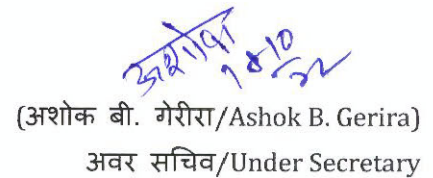 अशोक
(अशोक बी. गेरीरा/Ashok B. Gerira)
अवर सचिव/Under Secretary